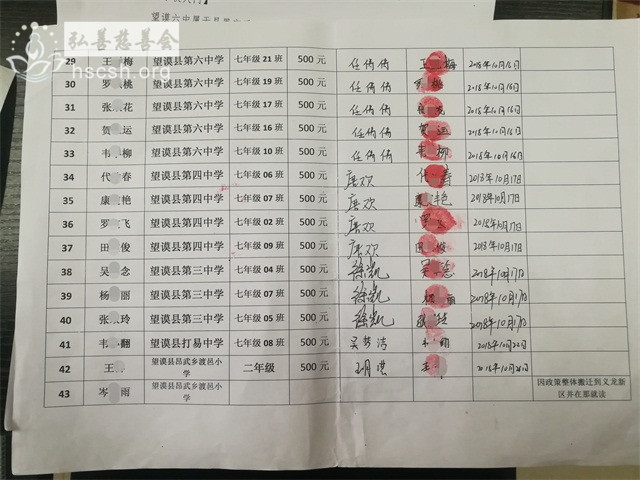 望谟六中属于
弘善慈善会
hscsh.org
29 王 梅 望谟县第六中学 七年级 21 班 500 元 任倩倩 王 梅 2018年10月16日
30 罗 桃 望谟县第六中学 七年级 19 班 500 元 任倩倩 桃 2018年10月16日
31 张 花 望谟县第六中学 七年级 17 班 500 元 任倩倩 2018年10月16日
32 贺 运 望谟县第六中学 七年级 16 班 500 元 任倩倩 贺 运 2018年10月16日
33 韦 柳 望谟县第六中学 七年级 10 班 500 元 任倩倩 韦 柳 2018年10月16日
34 代 春 望谟县第四中学 七年级 06 班 500 元 唐欢 代 春 2018年10月17日
35 康 艳 望谟县第四中学 七年级 07 班 500 元 唐欢 康 艳 2018年10月17日
36 罗 飞 望谟县第四中学 七年级 02 班 500 元 唐欢 2018年10月17日
37 田 俊 望谟县第四中学 七年级 09 班 500 元 唐欢 田 俊 2018年10月17日
38 吴 念 望谟县第三中学 七年级 04 班 500 元 徐凯 吴 念 2018年10月17日
39 杨 丽 望谟县第三中学 七年级 07 班 500 元 徐凯 丽 2018年10月17日
40 张 玲 望谟县第三中学 七年级 05 班 500 元 徐凯 张 玲 2018年10月17日
41 韦 翻 望谟县打易中学 七年级 08 班 500 元 吴梦洁 2018年10月22日
42 王 望谟县昂武乡渡邑小学 二年级 500 元 王 2018年10月26日
43 岑 雨 望谟县昂武乡渡邑小学 因政策整体搬迁到义龙新区并在那就读